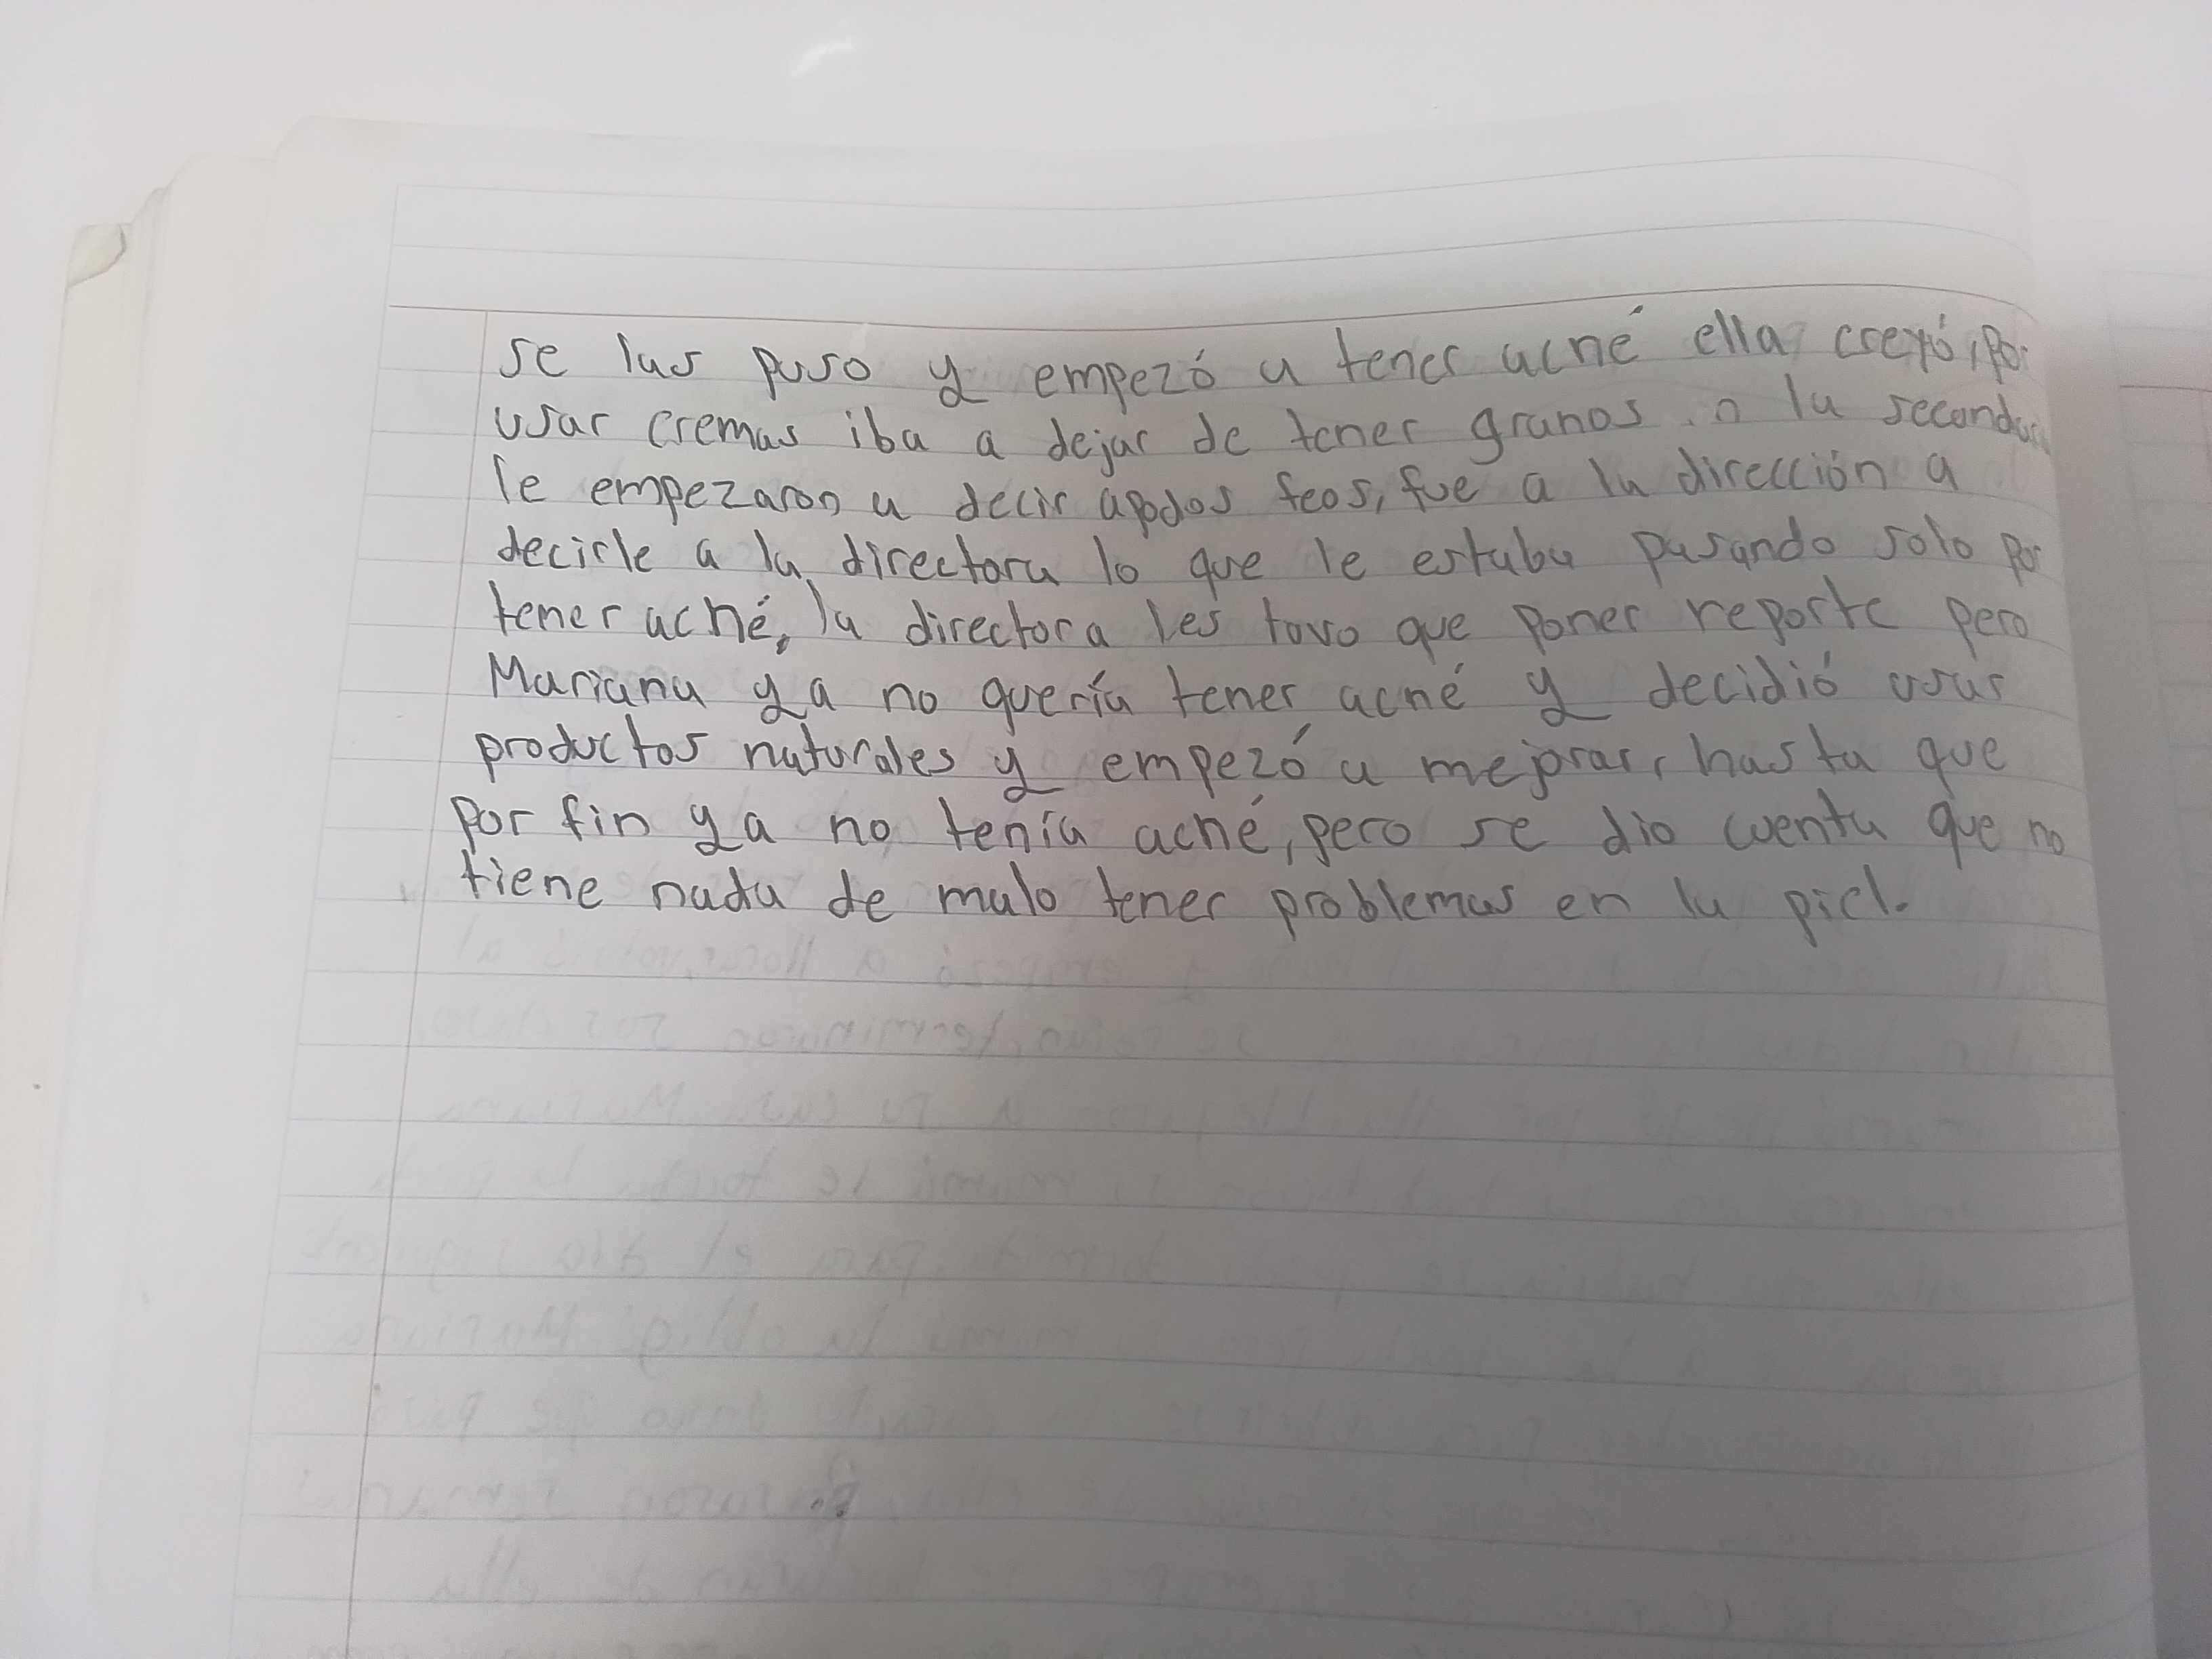 se las puso y empezó a tener acné ella creyó, por
usar cremas iba a dejar de tener granos. a la secundar
le empezaron a decir apodos feos, fue a la dirección a
decirle a la directora lo que le estaba pasando solo por
tener acné, la directora les tuvo que poner reporte pero
Mariana ya no quería tener acné y decidió usar
productos naturales y empezó a mejorar, hasta que
por fin ya no tenía acné, pero se dio cuenta que no
tiene nada de malo tener problemas en la piel.